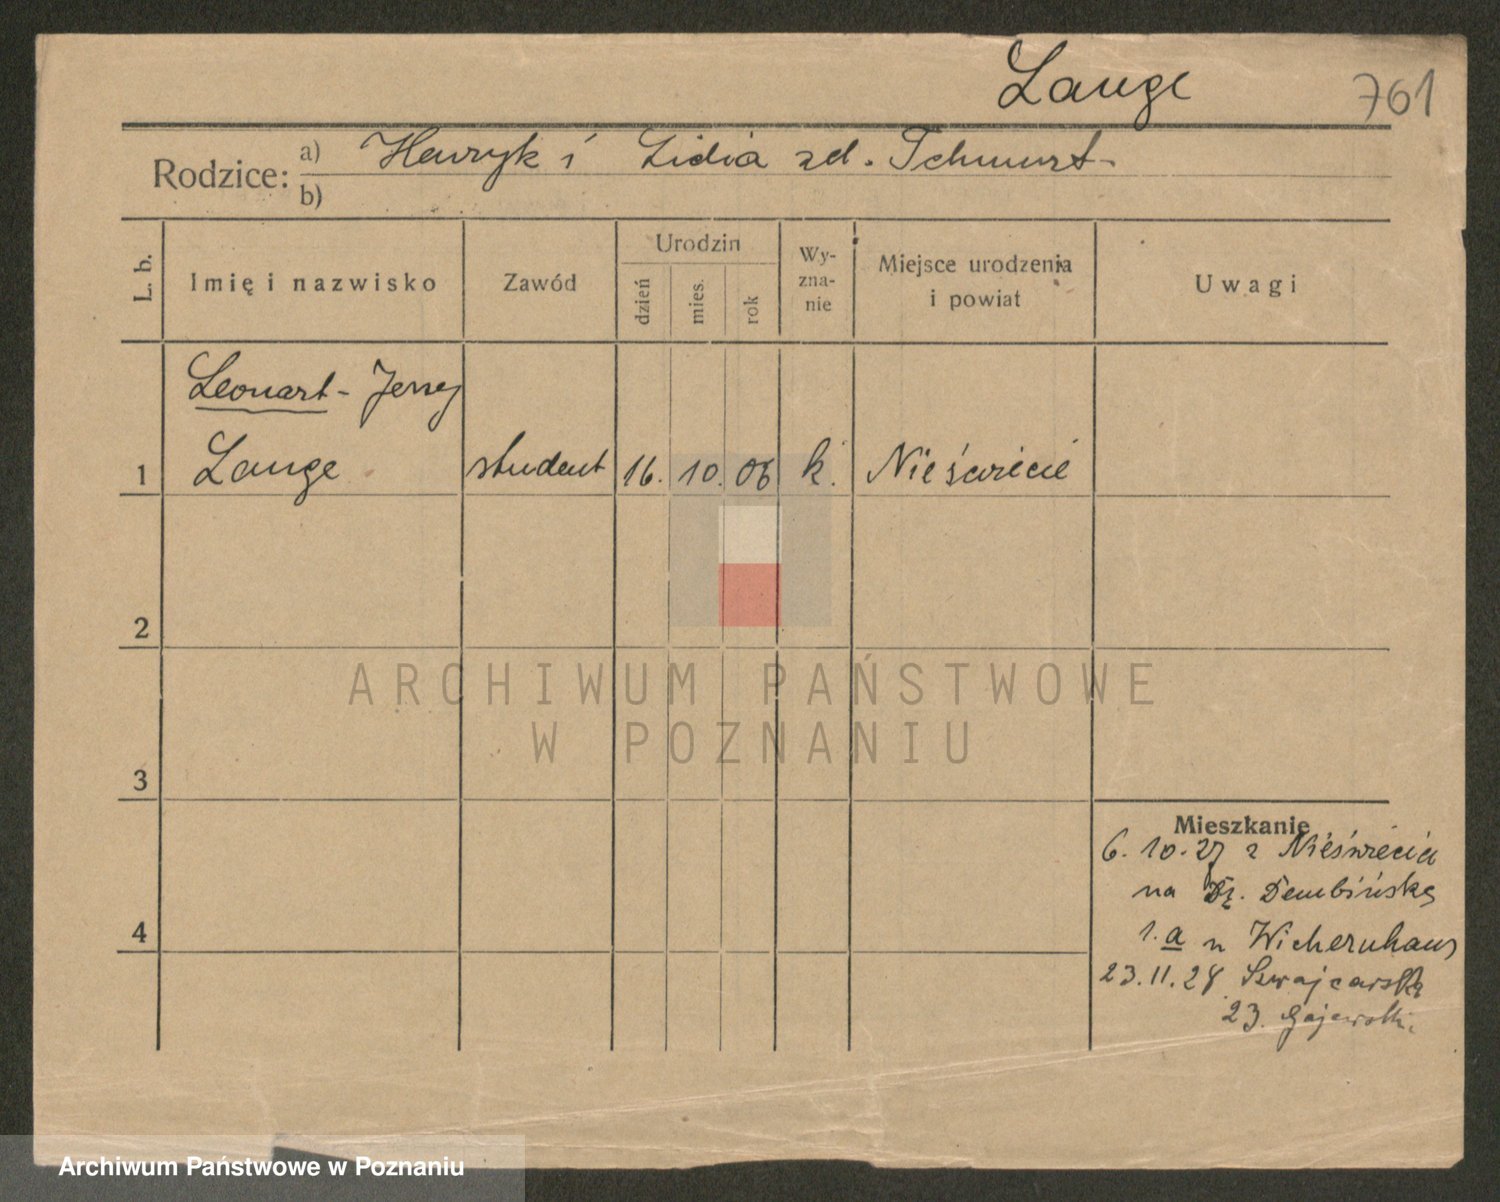 Lange 761
Rodzice: a) Henryk i Lidia zd. Tchnurst
b)
L. b. Imię i nazwisko Zawód Urodzin dzień mies. rok Wyznanie Miejsce urodzenia i powiat Uwagi
Leonart - Jerzy
1 Lange student 16. 10. 06 k. Nieświecie
2
ARCHIWUM PAŃSTWOWE
W POZNANIU
3
Mieszkanie
6. 10. 27 z Nieświecia
na Dę. Dembińską
4 1. a u Wichernhaus
23. 11. 28 Szwajcarska
23. Gajewski.
Archiwum Państwowe w Poznaniu